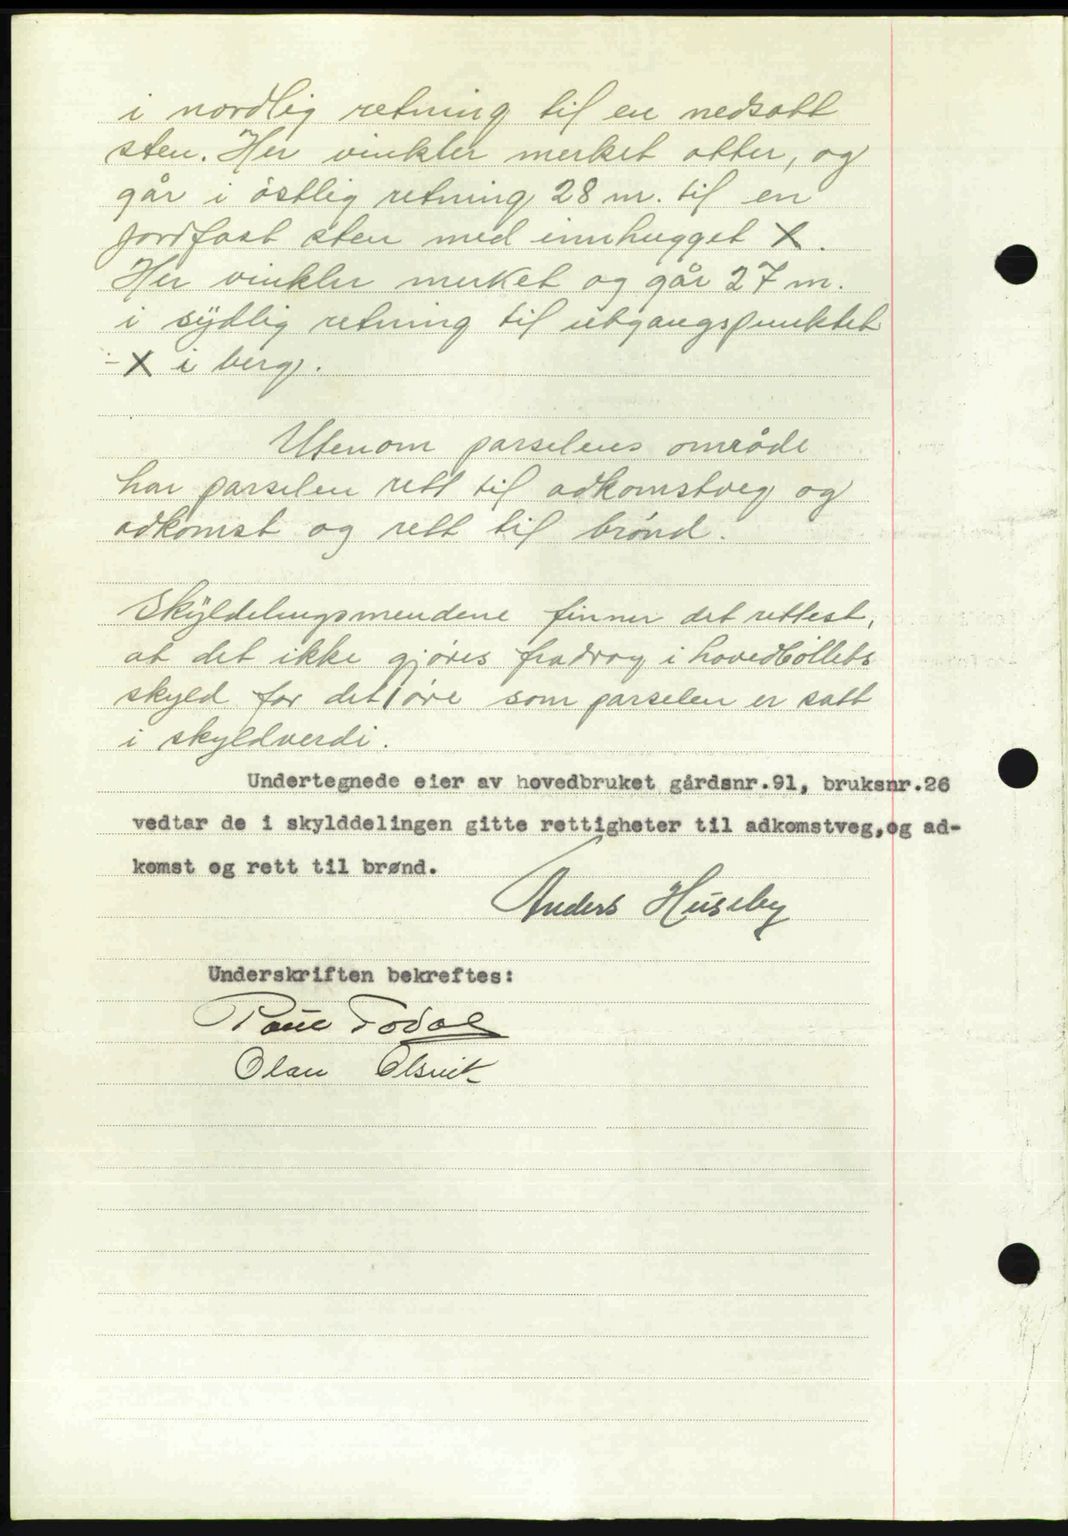 i nordlig retning til en nedsatt
sten. Her vinkler merket atter, og
går i östlig retning 28 m. til en
jordfast sten med innhugget X.
Her vinkler merket og går 27 m.
i sÿdlig retning til utgangspunktet
- X i berg.
Utenom parselens område
har parselen rett til adkomstveg og
adkomst og rett til brönd.
Skÿldelingsmendene finner det rettest,
at det ikke gjöres fradrag i hovedbóllets
skyld for det 1 öre som parselen er satt
i skyldverdi.
Undertegnede eier av hovedbruket gårdsnr.91, bruksnr.26
vedtar de i skylddelingen gitte rettigheter til adkomstveg,og ad-
komst og rett til brønd.
Anders Huseby
Underskriften bekreftes:
Paul Todal
Olav Olsvik